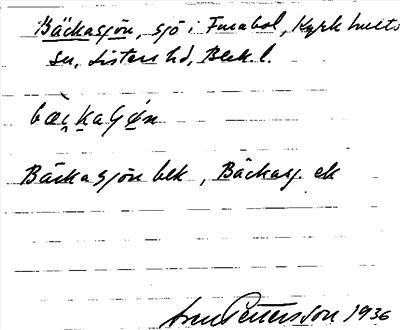 Bäckasjön, sjö i Furabol, Kyrkhults
sn, Listers hd, Blek. l.
Bäckasjön blk, Bäckasj. ek
Pettersson 1936